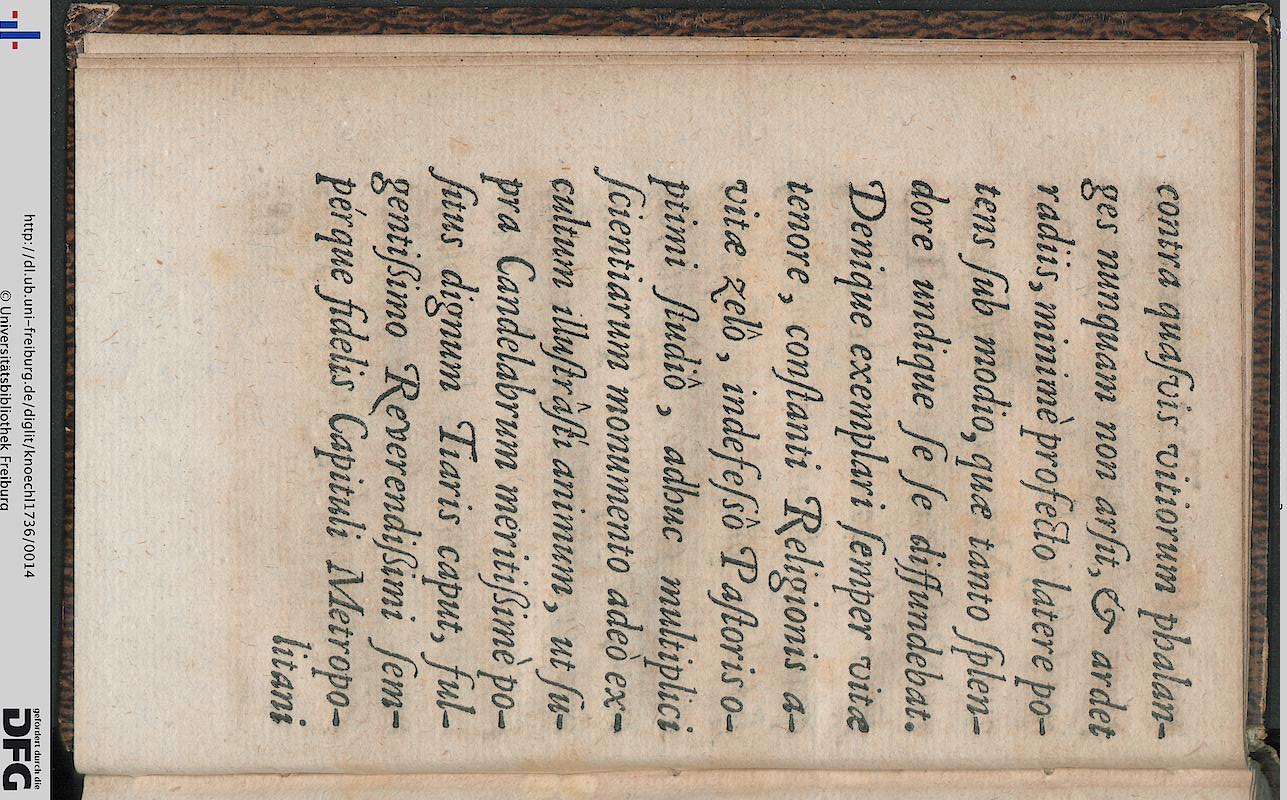 contra quaſvis vitiorum phalan-
ges nunquam non arſit, & ardet
radiis, minimè profecto latere po-
tens ſub modio, quæ tanto ſplen-
dore undique ſe ſe diffundebat.
Denique exemplari ſemper vitæ
tenore, conſtanti Religionis a-
vitæ zelô, indefeſſô Paſtoris o-
ptimi ſtudiô, adhuc multiplici
ſcientiarum monumento adeò ex-
cultum illuſtrâſti animum, ut ſu-
pra Candelabrum meritiſſimè po-
ſitus dignum Tiaris caput, ful-
gentiſſimo Reverendiſſimi ſem-
pérque fidelis Capituli Metropo-
litani
http://dl.ub.uni-freiburg.de/diglit/knoechl1736/0014
© Universitätsbibliothek Freiburg
gefördert durch die
DFG